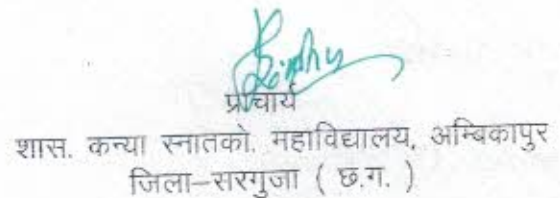 प्राचार्य
शास. कन्या स्नातको. महाविद्यालय, अम्बिकापुर
जिला–सरगुजा ( छ.ग. )